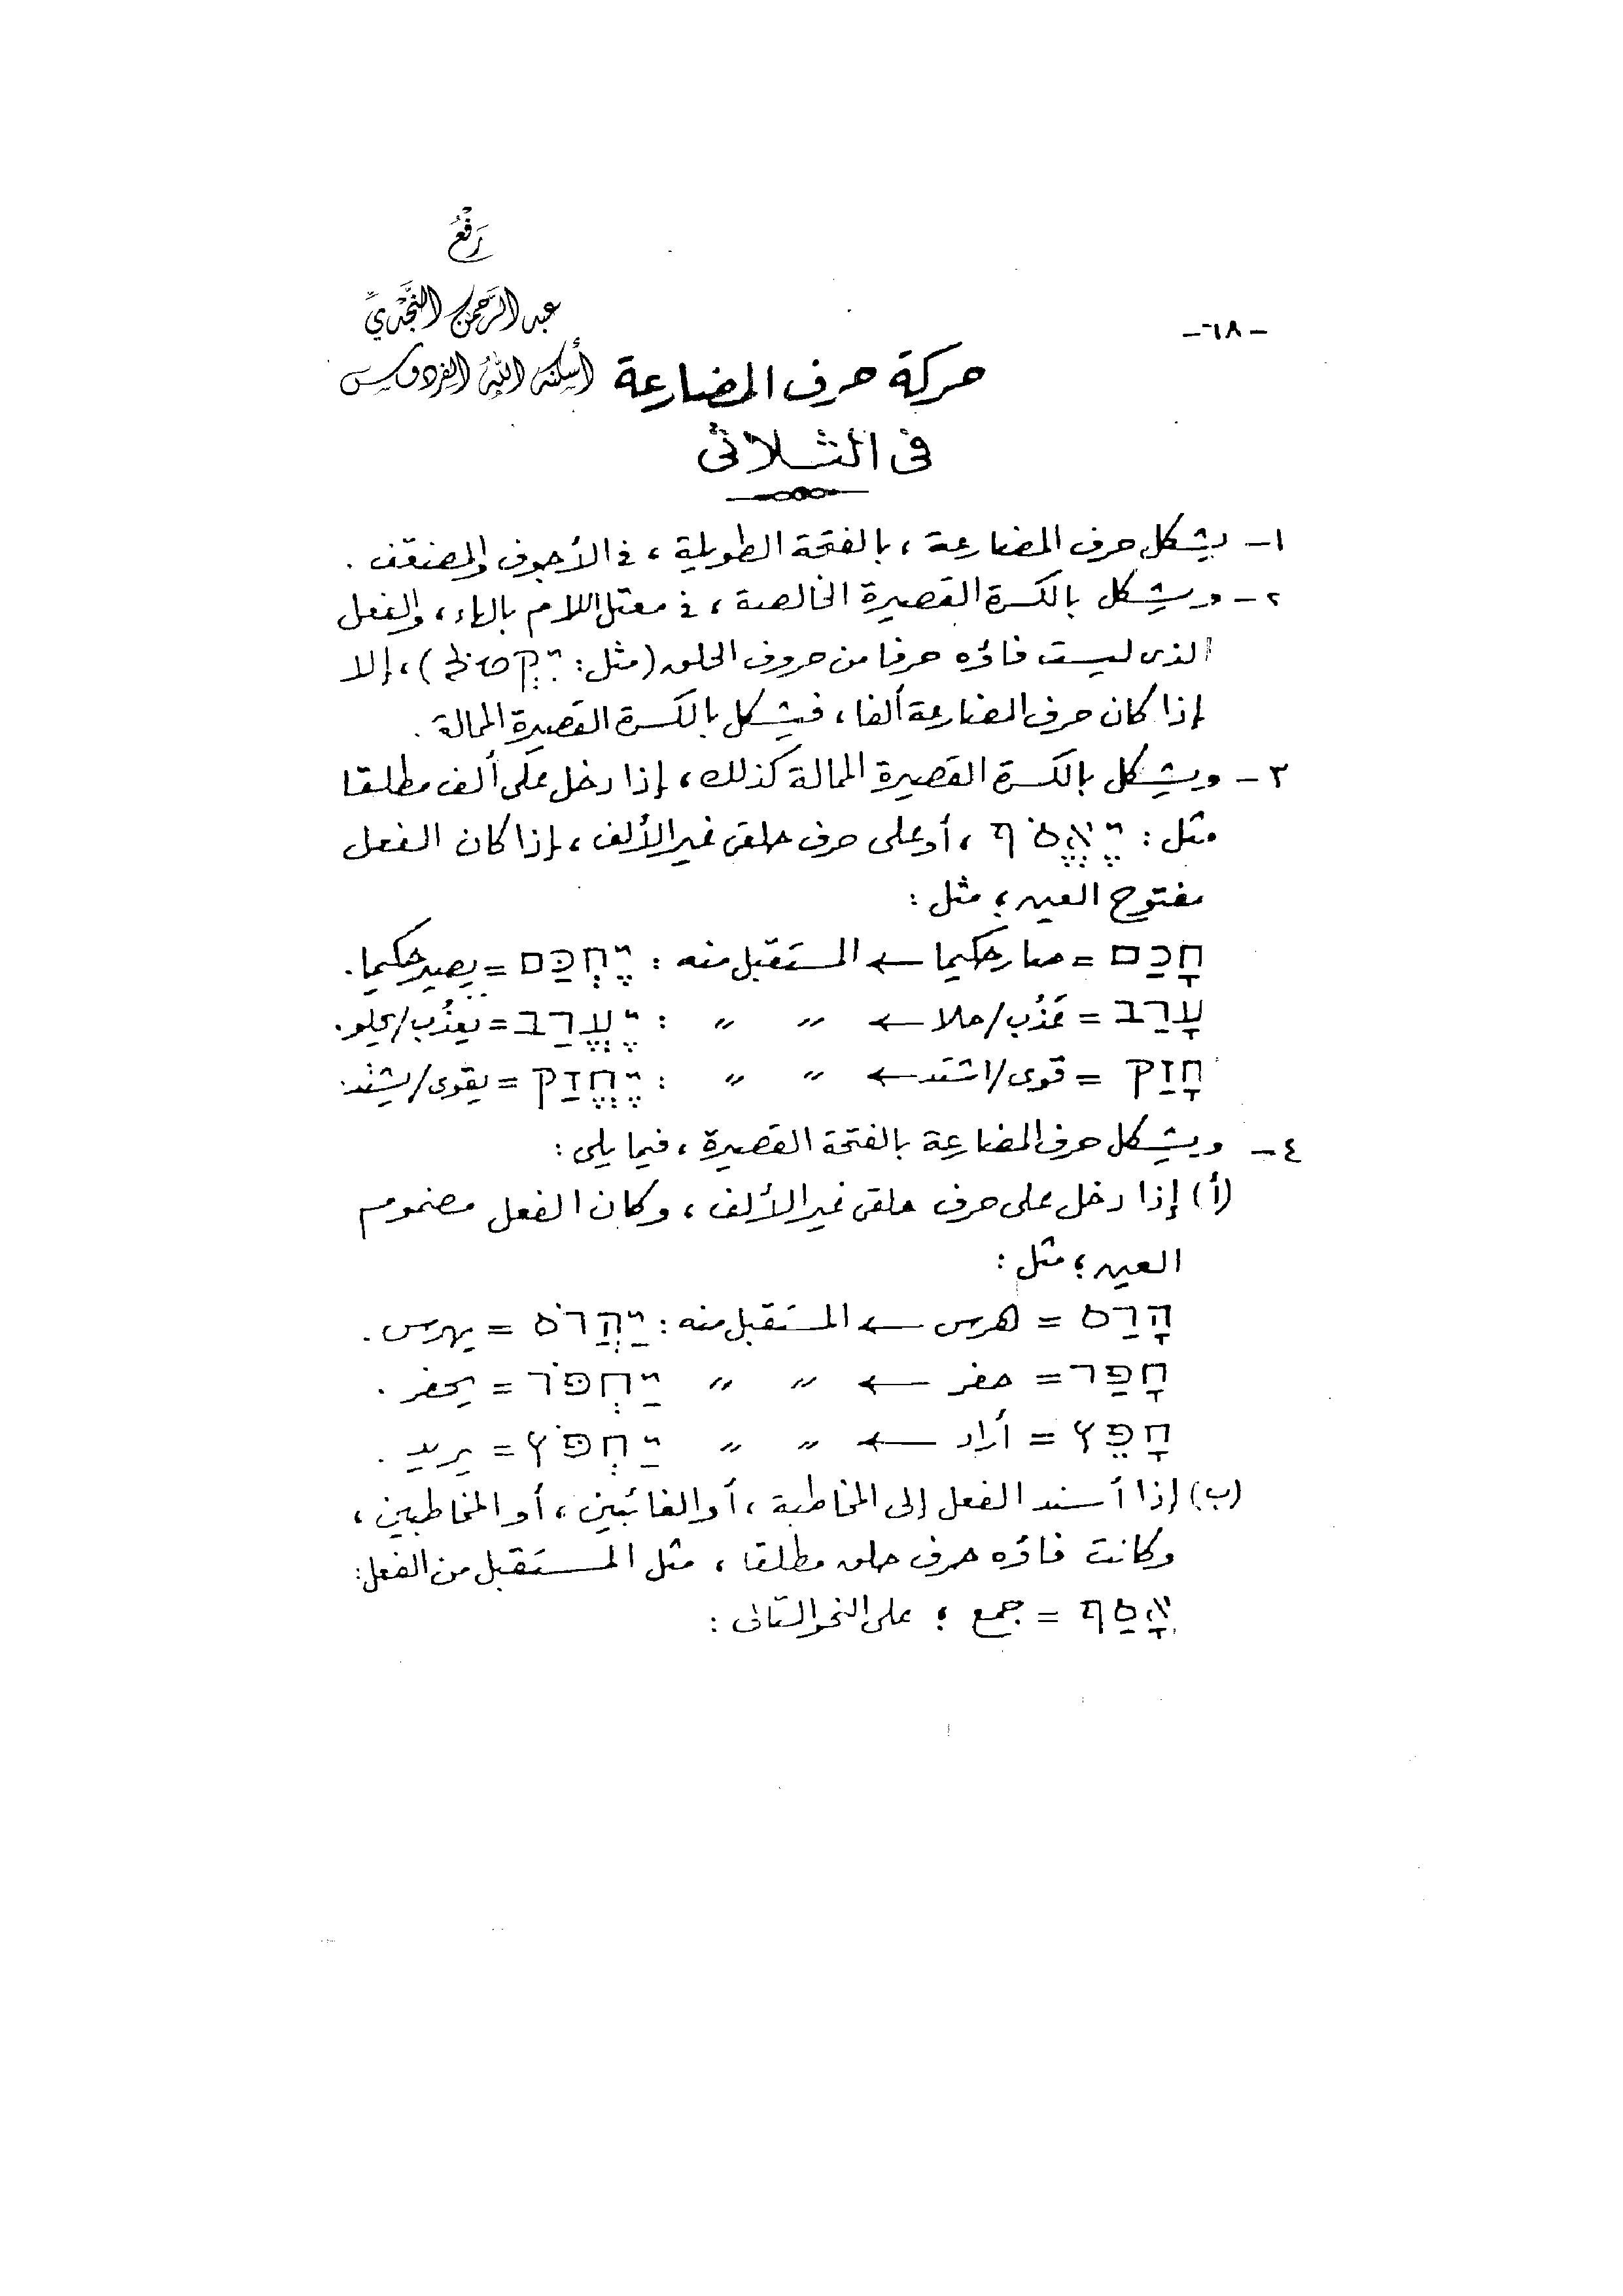 رَفْعُ
عبد الرَّحمن النَّجْديِّ
أسكنه اللهُ الفردوس
-٦٨-
حركة حرف المضارعة
فى الثلاثى
١- يشكل حرف المضارعة ، بالفتحة الطويلة ، فى الأجوف والمضعّف .
٢- ويشكل بالكسرة القصيرة الخالصة ، فى معتل اللام بالهاء ، والفعل
الذى ليست فاؤه حرفا من حروف الحلق (مثل : יִקְטֹל) ، إلا
إذا كان حرف المضارعة ألفا ، فيشكل بالكسرة القصيرة الممالة .
٣- ويشكل بالكسرة القصيرة الممالة كذلك ، إذا دخل على ألف مطلقا
مثل : יֶאֱסֹף ، أو على حرف حلقى غير الألف ، إذا كان الفعل
مفتوح العين ؛ مثل :
חָכַם = صار حكيما ← المستقبل منه : יֶחְכַּם = يصير حكيما .
עָרַב = عَذُب/حلا ← 〃 〃 : יֶעֱרַב = يعذُب/يحلو .
חָזַק = قوى/اشتد ← 〃 〃 : יֶחֱזַק = يقوى/يشتد .
٤- ويشكل حرف المضارعة بالفتحة القصيرة ، فيما يلى :
(أ) إذا دخل على حرف حلقى غير الألف ، وكان الفعل مضموم
العين ؛ مثل :
הָרַס = هرس ← المستقبل منه : יַהֲרֹס = يهرس .
חָפַר = حفر ← 〃 〃 יַחְפֹּר = يحفر .
חָפֵץ = أراد ← 〃 〃 יַחְפֹּץ = يريد .
(ب) إذا أسند الفعل إلى المخاطبة ، أو الغائبين ، أو المخاطبين ،
وكانت فاؤه حرف حلق مطلقا ، مثل المستقبل من الفعل :
אָסַף = جمع ؛ على النحو التالى :